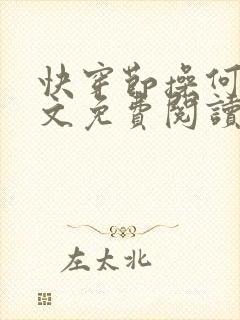 快穿節操何
文免費閱讀
左太北